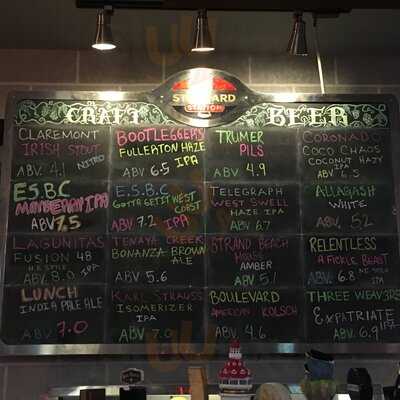 STANDARD
STATION
CRAFT BEER
CLAREMONT
IRISH STOUT
NITRO
ABV 4.1
BOOTLEGGERS
FULLERTON HAZE
IPA
ABV 6.5
TRUMER
PILS
ABV 4.9
CORONADO
COCO CHAOS
COCONUT HAZY
IPA
ABV 6.5
E.S.B.C
IPA
ABV 7.5
E.S.B.C.
GOTTA GET IT WEST
COAST
ABV 7.2 IPA
TELEGRAPH
WEST SWELL
HAZE IPA
ABV 6.7
ALLAGASH
WHITE
ABV 5.2
LAGUNITAS
FUSION 48
IPA
ABV 8.0
TENAYA CREEK
BONANZA BROWN
ALE
ABV 5.6
STRAND BEACH
HOUSE
AMBER
ABV 5.1
RELENTLESS
A FICKLE BEAST
ABV 6.8
IPA
LUNCH
INDIA PALE ALE
ABV 7.0
KARL STRAUSS
ISOMERIZER
IPA
ABV 7.0
BOULEVARD
AMERICAN KOLSCH
ABV 4.6
THREE WEAV3RS
EXPATRIATE
IPA
ABV 6.9